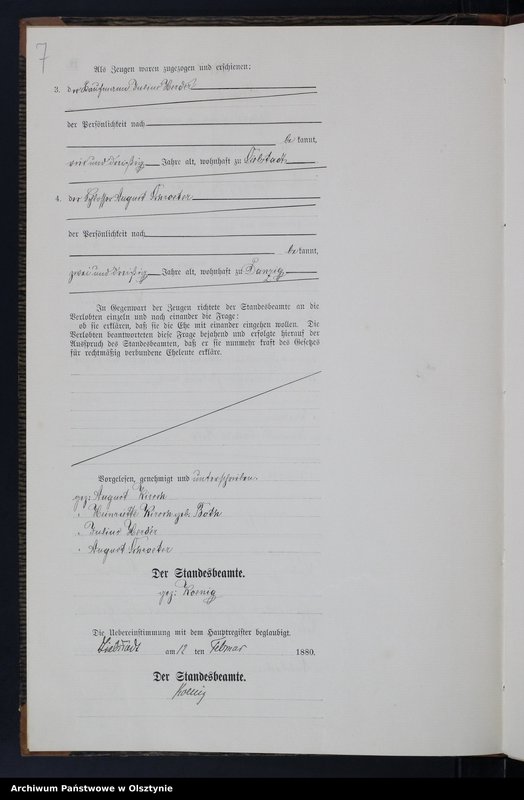 7
Als Zeugen waren zugezogen und erschienen:
3. der Kaufmann Julius Herder
der Persönlichkeit nach
be kannt,
vier und dreißig Jahre alt, wohnhaft zu Liebstadt
4. der Schlosser August Schroeter
der Persönlichkeit nach
be kannt,
zwei und dreißig Jahre alt, wohnhaft zu Danzig
In Gegenwart der Zeugen richtete der Standesbeamte an die
Verlobten einzeln und nach einander die Frage:
ob sie erklären, daß sie die Ehe mit einander eingehen wollen. Die
Verlobten beantworteten diese Frage bejahend und erfolgte hierauf der
Ausspruch des Standesbeamten, daß er sie nunmehr kraft des Gesetzes
für rechtmäßig verbundene Eheleute erkläre.
Vorgelesen, genehmigt und unterschrieben.
gez: August
Henriette geb. Both
Julius Herder
August Schroeter
Der Standesbeamte.
gez: Koenig
Die Uebereinstimmung mit dem Hauptregister beglaubigt.
Liebstadt am 12 ten Februar 1880.
Der Standesbeamte.
Koenig
Archiwum Państwowe w Olsztynie